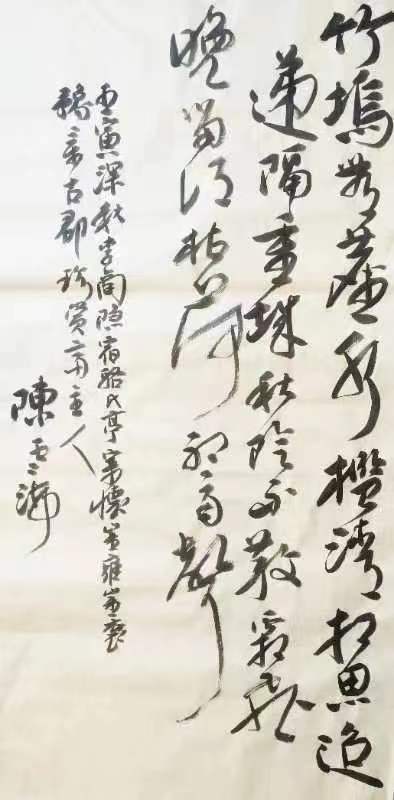 竹塢無塵水檻清相思迢
遞隔重城秋陰不散霜飛
晚留得枯荷聽雨聲
寅深秋李商隱宿駱氏亭寄懷崔雍崔袞
古郡珍賞齋主人
陳雲海